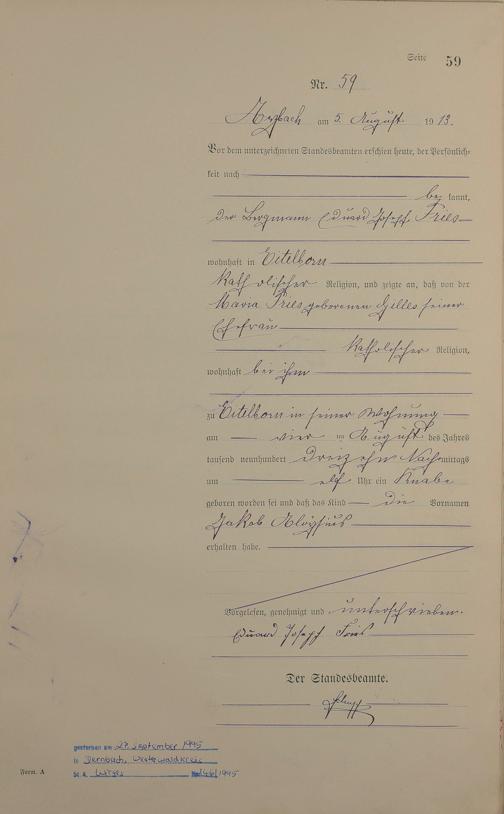 Seite 59
Nr. 59
Arzbach am 5. August 1913.
Vor dem unterzeichneten Standesbeamten erschien heute, der Persönlich-
keit nach
be kannt,
der Bergmann Eduard Joseph Fries
wohnhaft in Eitelborn
katholischer Religion, und zeigte an, daß von der
Maria Fries geborenen Gilles seiner
Ehefrau
katholischer Religion,
wohnhaft bei ihm
zu Eitelborn in seiner Wohnung
am vier ten August des Jahres
tausend neunhundert dreizehn Nachmittags
um elf Uhr ein Knabe
geboren worden sei und daß das Kind die Vornamen
Jakob Aloysius
erhalten habe.
Vorgelesen, genehmigt und unterschrieben.
Eduard Joseph Fries
Der Standesbeamte.
gestorben am 27. September 1995
in Dernbach, Westerwaldkreis
St. A. Wirges 1995
Form. A